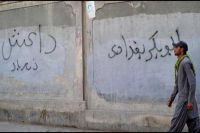 داعش
ابوبکر بغدادی